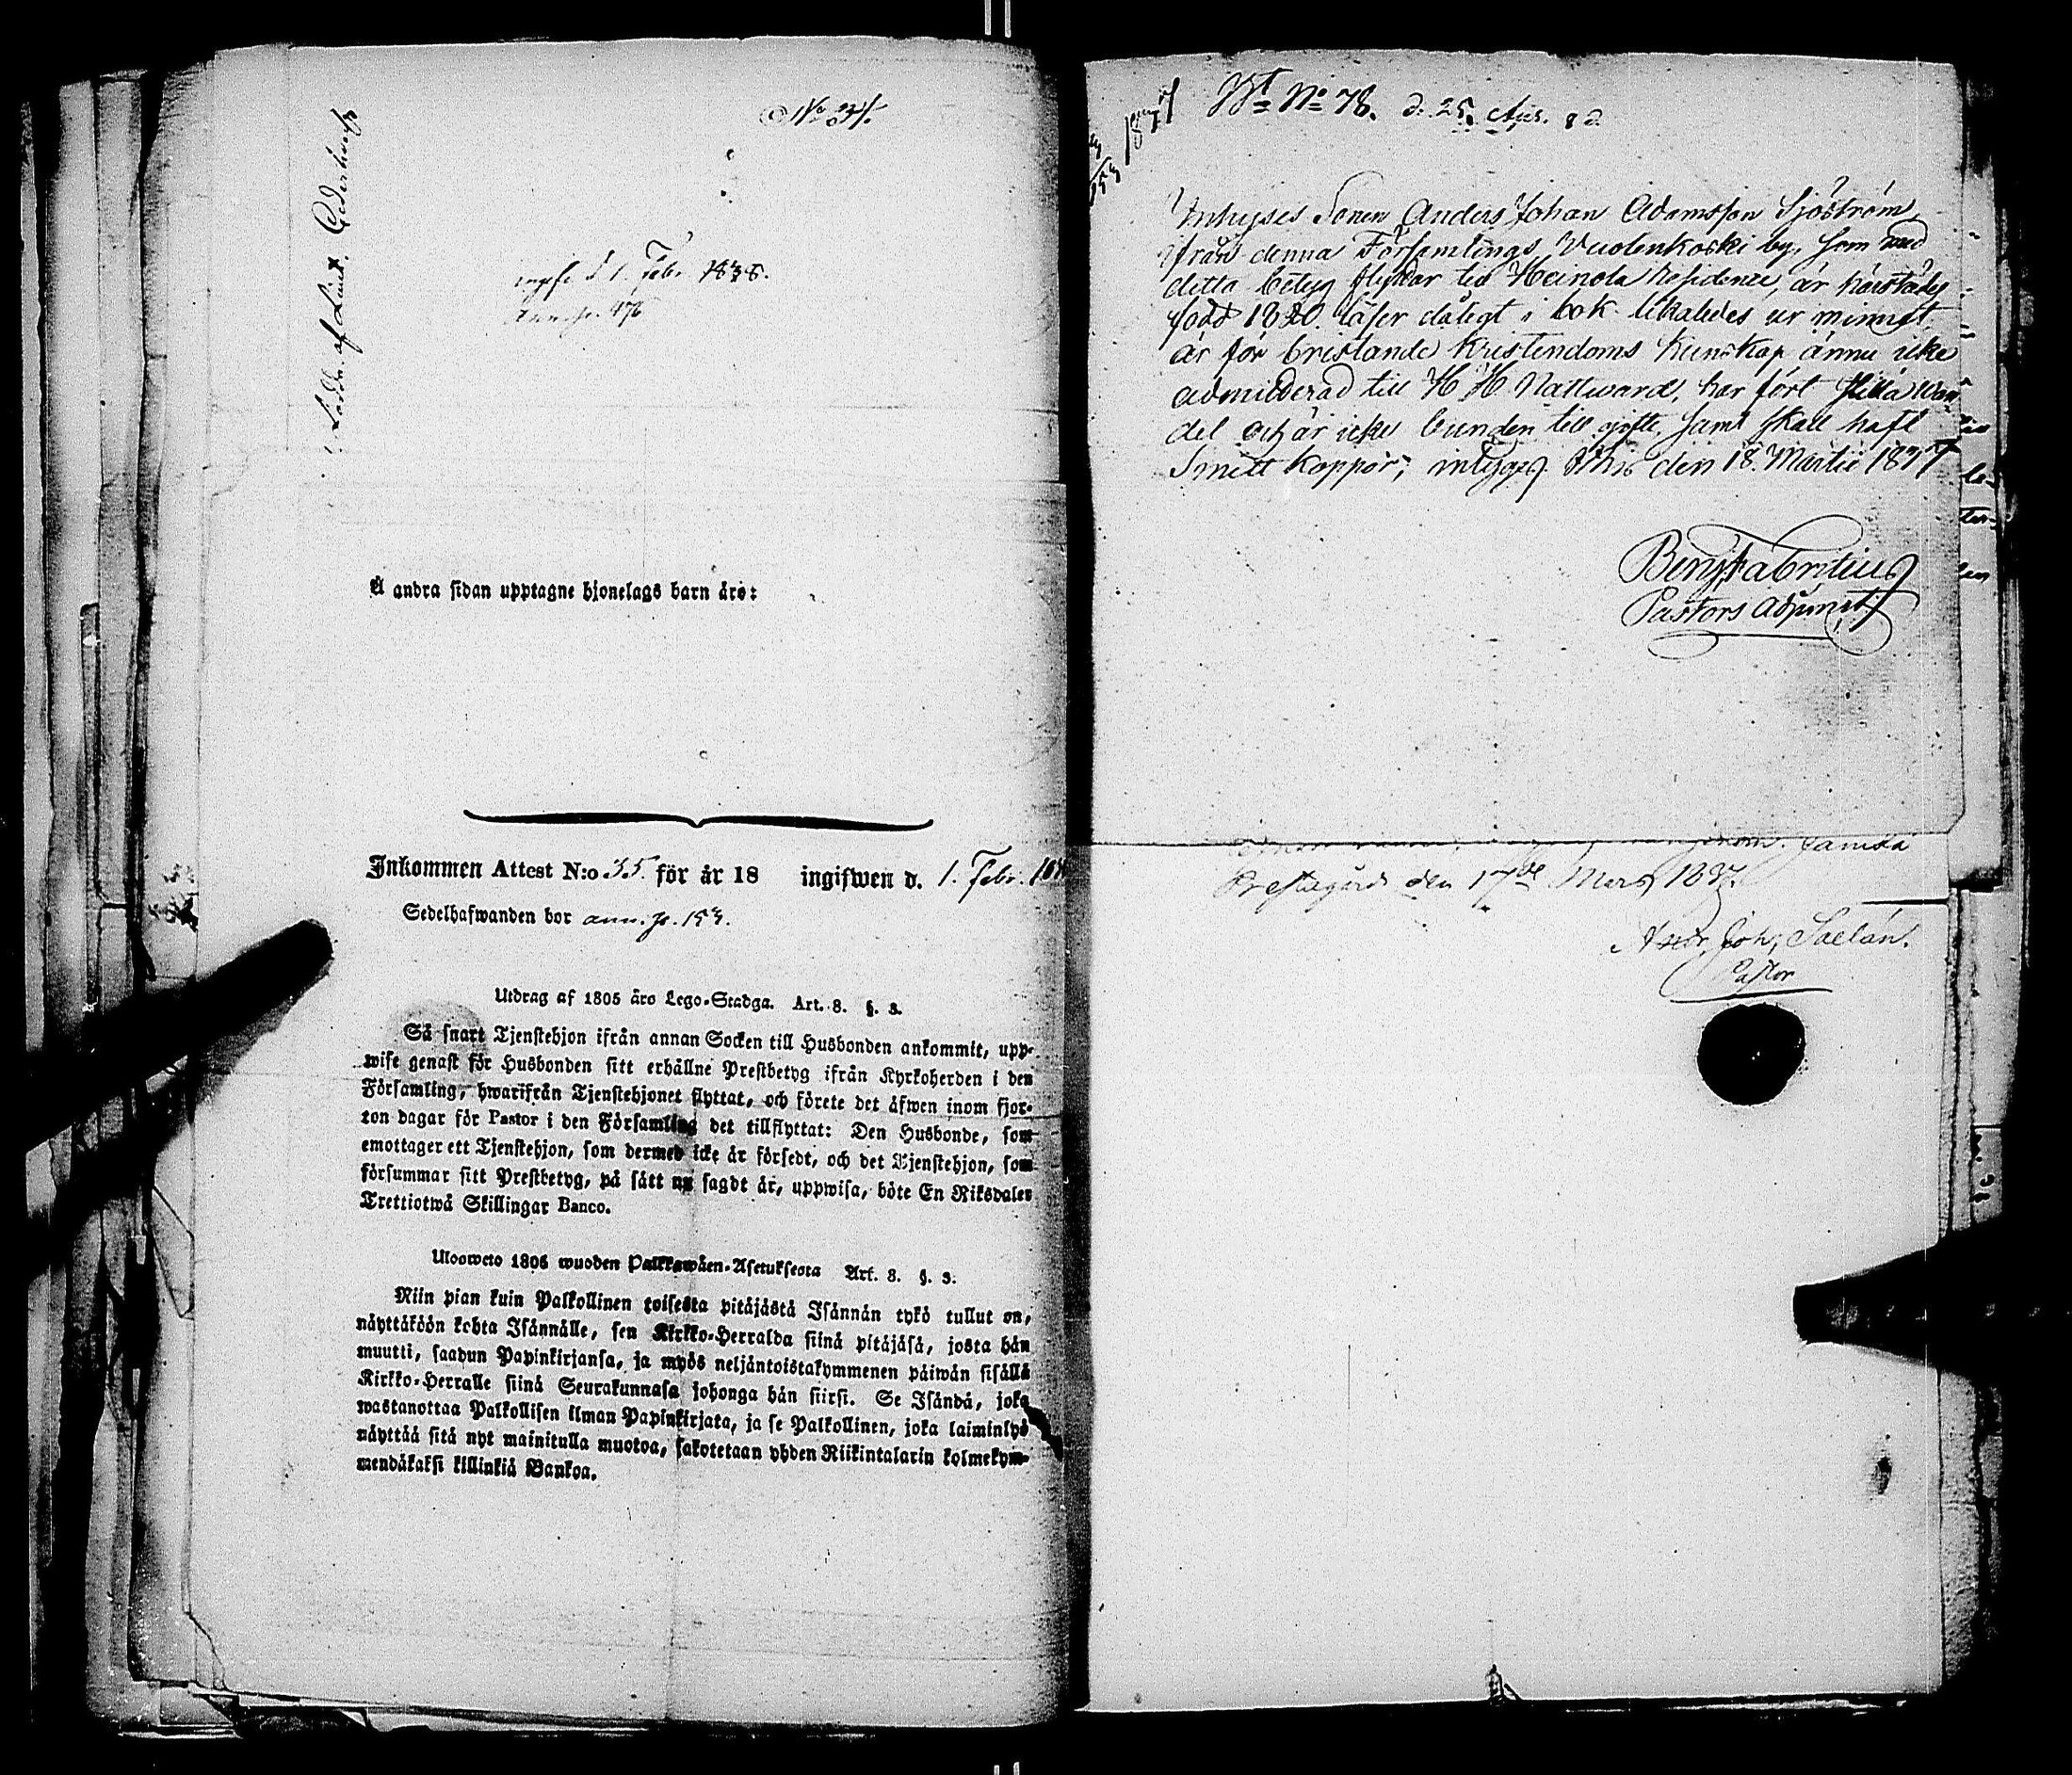 No 34.
ingifv. d 1. Febr. 1838.
Ann. p. 476
Å andra sidan upptagne hjonelags barn äro:
Inkommen Attest N:o 35. för år 18 ingifwen d. 1. Febr. 183
Sedelhafwanden bor ann. p. 153.
Utdrag af 1805 års Lego-Stadga. Art. 8. §. 3.
Så snart Tjenstehjon ifrån annan Socken till Husbonden ankommit, upp-
wise genast för Husbonden sitt erhållne Prestbetyg ifrån Kyrkoherden i den
Församling, hwarifrån Tjenstehjonet flyttat, och förete det äfwen inom fjor-
ton dagar för Pastor i den Församling det tillflyttat: Den Husbonde, som
emottager ett Tjenstehjon, som dermed icke är försedt, och det Tjenstehjon, som
försummar sitt Prestbetyg, på sätt nu sagdt är, uppwisa, böte En Riksdaler
Trettiotwå Skillingar Banco.
Ulosweto 1805 wuoden Palkkawäen-Asetuksesta Art. 8. §. 3.
Niin pian kuin Palkollinen toisesta pitäjästä Isännän tykö tullut on,
näyttäköön kohta Isännälle, sen Kirkko-Herralda siinä pitäjäsä, josta hän
muutti, saadun Papinkirjansa, ja myös neljäntoistakymmenen päiwän sisällä
Kirkko-Herralle siinä Seurakunnasa johonga hän siirsi. Se Isändä, joka
wastanottaa Palkollisen ilman Papinkirjata, ja se Palkollinen, joka laiminlyö
näyttää sitä nyt mainitulla muotoa, sakotetaan yhden Riikintalarin kolmekym-
mendäkaksi killinkiä Bankoa.
No 78. d. 25.
Inhyses Sonen Anders Johan Adamsson Sjöström,
ifrån denna Församlings Vuolenkoski by, som med
detta betyg flyttar till Heinola Residence, är härstädes
född 1820. läser dåligt i bok likaledes ur minnet,
är för bristande Kristendoms Kunskap ännu icke
admitterad till H H. Nattward, har fört stilla wan-
del och är icke bunden till gifte, samt skall haft
Smitt koppor; intygas Ithis den 18. Martii 1837
Beng Fabritius
Pastors Adjunct.
Jämsä
Prestegård den 17de Mars 1837.
Andr. Joh. Saelan.
Pastor